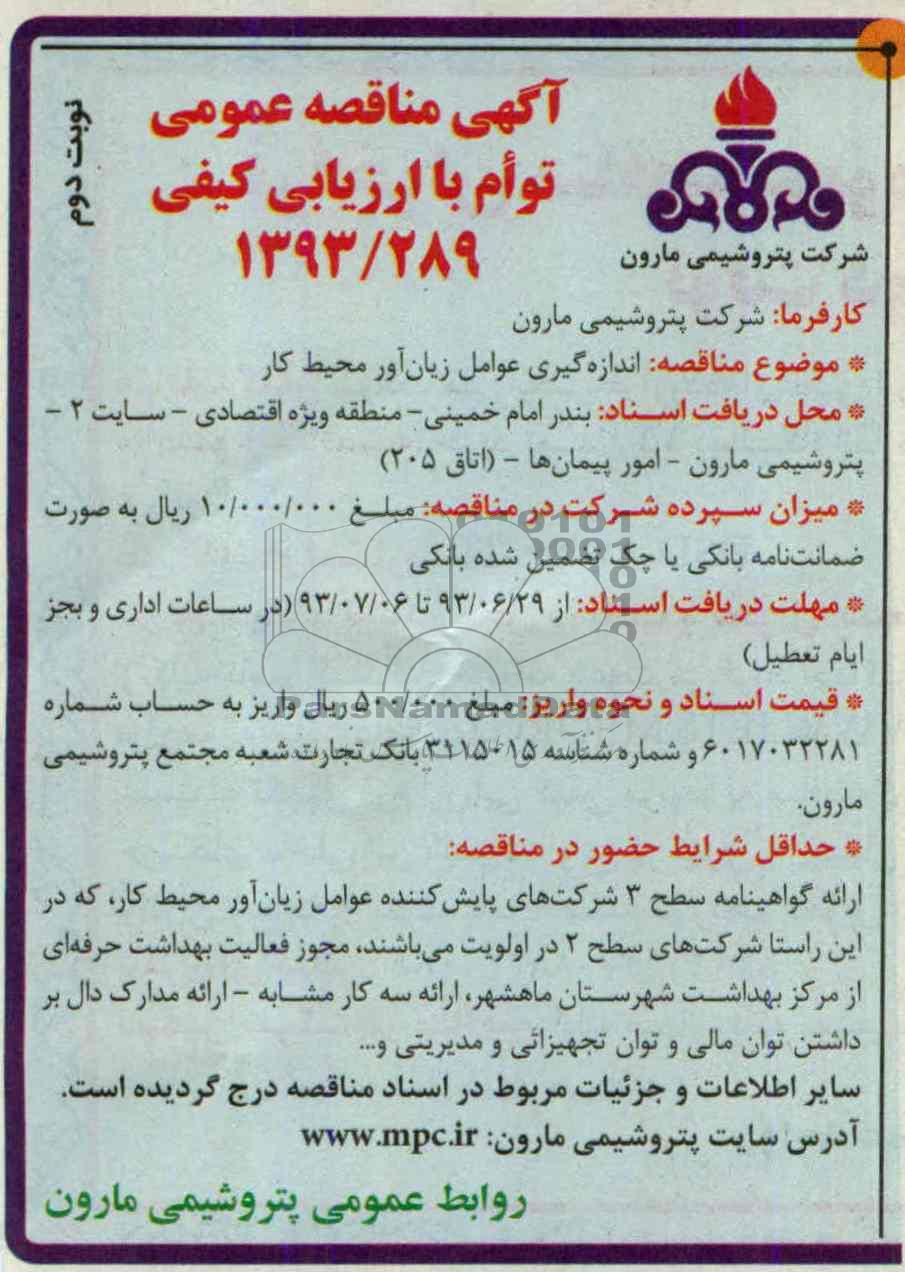 آگهی مناقصه عمومی
توأم با ارزیابی کیفی
۱۳۹۳/۲۸۹
نوبت دوم
شرکت پتروشیمی مارون
کارفرما: شرکت پتروشیمی مارون
* موضوع مناقصه: اندازه‌گیری عوامل زیان‌آور محیط کار
* محل دریافت اسناد: بندر امام خمینی- منطقه ویژه اقتصادی - سایت ۲ -
پتروشیمی مارون - امور پیمان‌ها - (اتاق ۲۰۵)
* میزان سپرده شرکت در مناقصه: مبلغ ۱۰/۰۰۰/۰۰۰ ریال به صورت
ضمانت‌نامه بانکی یا چک تضمین شده بانکی
* مهلت دریافت اسناد: از ۹۳/۰۶/۲۹ تا ۹۳/۰۷/۰۶ (در ساعات اداری و بجز
ایام تعطیل)
* قیمت اسناد و نحوه واریز: مبلغ ۵۰۰/۰۰۰ ریال واریز به حساب شماره
۶۰۱۷۰۳۲۲۸۱ و شماره شناسه ۳۱۱۵۰۱۵ بانک تجارت شعبه مجتمع پتروشیمی
مارون.
* حداقل شرایط حضور در مناقصه:
ارائه گواهینامه سطح ۳ شرکت‌های پایش‌کننده عوامل زیان‌آور محیط کار، که در
این راستا شرکت‌های سطح ۲ در اولویت می‌باشند، مجوز فعالیت بهداشت حرفه‌ای
از مرکز بهداشت شهرستان ماهشهر، ارائه سه کار مشابه - ارائه مدارک دال بر
داشتن توان مالی و توان تجهیزاتی و مدیریتی و...
سایر اطلاعات و جزئیات مربوط در اسناد مناقصه درج گردیده است.
آدرس سایت پتروشیمی مارون: www.mpc.ir
روابط عمومی پتروشیمی مارون
ParsNamadData